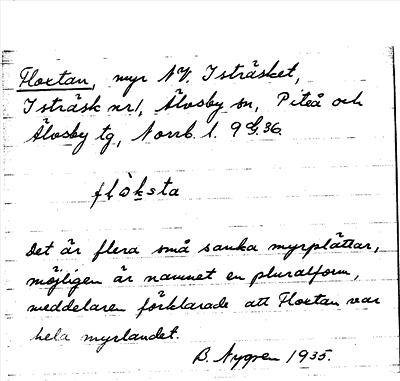 Floxtan, myr NV. Isträsket,
Isträsk nr 1, Älvsby sn, Piteå och
Älvsby tg, Norrb. l. 9 36.
flòksta
Det är flera små sanka myrplättar,
möjligen är namnet en pluralform,
meddelaren förklarade att Floxtan var
hela myrlandet.
B. Nygren 1935.